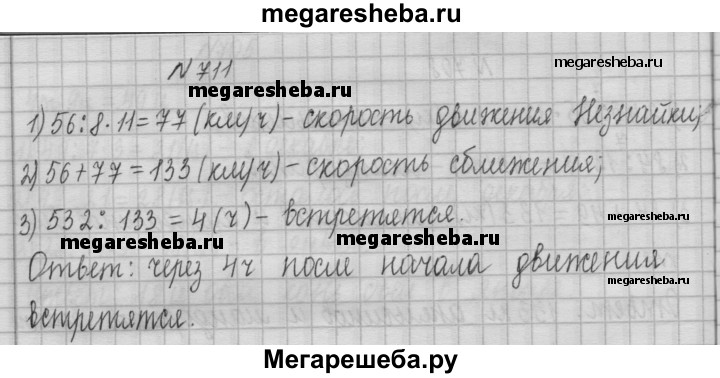 megaresheba.ru
N 711
megaresheba.ru
megaresheba.ru
1) 56:8·11=77 (км/ч) - скорость движения Незнайки;
2) 56+77=133 (км/ч) - скорость сближения;
3) 532:133=4 (ч) - встретятся.
megaresheba.ru
megaresheba.ru
Ответ: через 4ч после начала движения
megaresheba.ru
встретятся.
Мегарешеба.ру